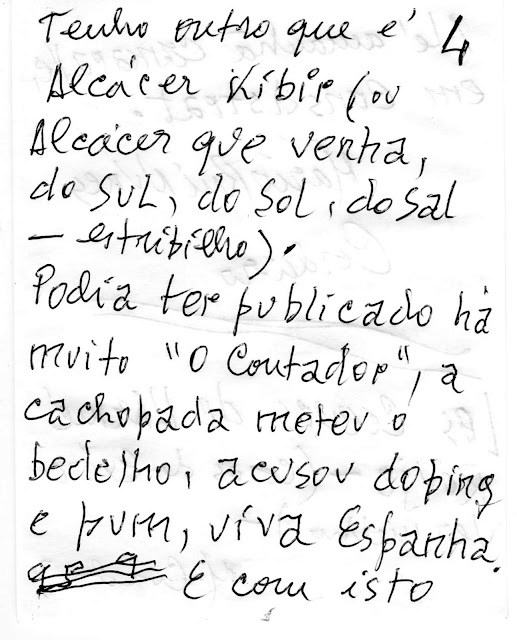 Tenho outro que é 4
Alcácer Kibir (ou
Alcácer que venha,
do SUL, do SOL, do Sal
— estribilho).
Podia ter publicado há
muito "O Contador", a
cachopada meteu o
bedelho, acusou doping
e pum, viva Espanha.
E com isto